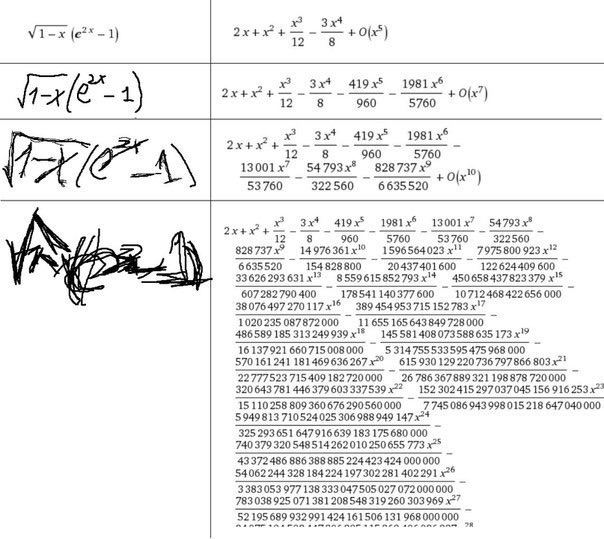 √(1 − x) (e^(2x) − 1)
2x + x² + x³/12 − 3x⁴/8 + O(x⁵)
√(1-x) (e^(2x) - 1)
2x + x² + x³/12 − 3x⁴/8 − 419x⁵/960 − 1981x⁶/5760 + O(x⁷)
2x + x² + x³/12 − 3x⁴/8 − 419x⁵/960 − 1981x⁶/5760 −
13001x⁷/53760 − 54793x⁸/322560 − 828737x⁹/6635520 + O(x¹⁰)
2x + x² + x³/12 − 3x⁴/8 − 419x⁵/960 − 1981x⁶/5760 − 13001x⁷/53760 − 54793x⁸/322560 −
828737x⁹/6635520 − 14976361x¹⁰/154828800 − 1596564023x¹¹/20437401600 − 7975800923x¹²/122624409600 −
33626293631x¹³/607282790400 − 8559615852793x¹⁴/178541140377600 − 450658437823379x¹⁵/10712468422656000 −
38076497270117x¹⁶/1020235087872000 − 389454953715152783x¹⁷/11655165643849728000 −
486589185313249939x¹⁸/16137921660715008000 − 145581408073588635173x¹⁹/5314755533595475968000 −
570161241181469636267x²⁰/22777523715409182720000 − 615930129220736797866803x²¹/26786367889321198878720000 −
320643781446379603337539x²²/15110258809360676290560000 − 152302415297037045156916253x²³/7745086943998015218647040000 −
5949813710524025306988949147x²⁴/325293651647916639183175680000 −
740379320548514262010250655773x²⁵/43372486886388885224423424000000 −
54062244328184224197302281402291x²⁶/3383053977138333047505027072000000 −
783038925071381208548319260303969x²⁷/52195689932991424161506131968000000 −